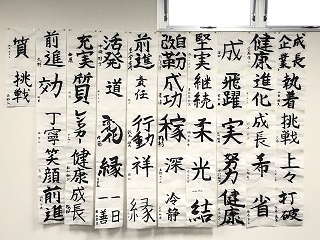 成長
企業
執着
挑戦
上々
打破
健康
進化
成長
希
省
成
飛躍
実
努力
健康
堅実
継続
柔
光
結
自分
改革
成功
稼
深
冷静
前進
責任
行動
祥
縁
活発
道
縁
一日
一善
充実
質
健康
成長
前進
効
丁寧
笑顔
前進
質
挑戦